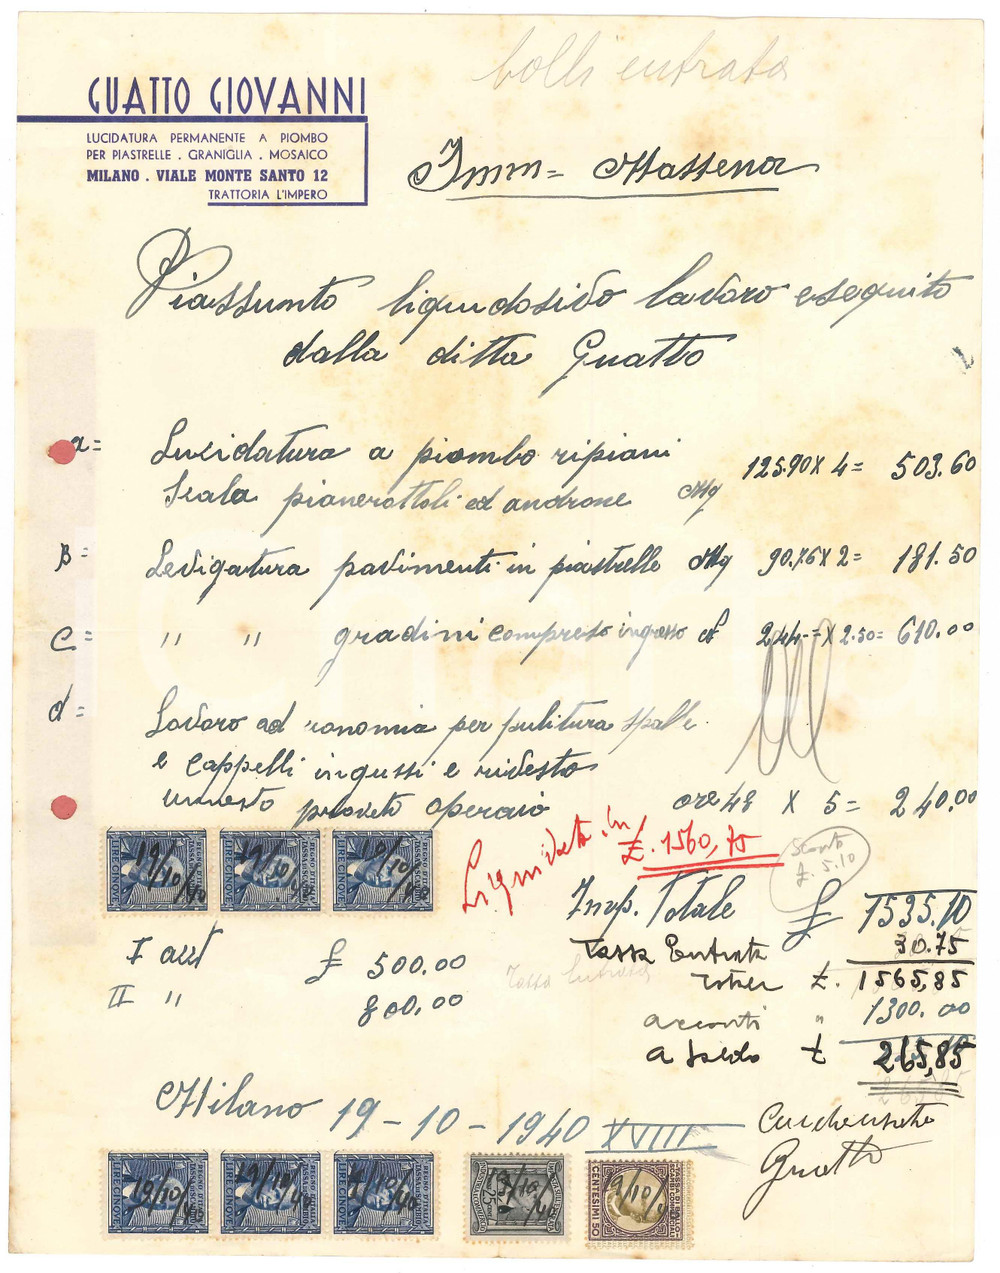 bolli entrata
GUATTO GIOVANNI
LUCIDATURA PERMANENTE A PIOMBO
PER PIASTRELLE . GRANIGLIA . MOSAICO
MILANO . VIALE MONTE SANTO 12
TRATTORIA L'IMPERO
Imm= Massena
Riassunto liquidosivo lavoro eseguito
dalla ditta Guatto
a= Lucidatura a piombo ripiani
Scala pianerottoli ed androne Mq 125.90 X 4= 503.60
B= Levigatura pavimenti in piastrelle Mq 90.76 X 2= 181.50
C= " " gradini compreso ingresso N 244= X 2.50= 610.00
d= Lavoro ad economia per pulitura spalle
e cappelli ingussi e rivesto
operaio ore 48 X 5= 240.00
Liquidata in £. 1560,75
Sconto
£. 5.10
Imp. Totale £ 1535.10
Tassa Entrata 30.75
Tassa Entrata
£. 1565,85
I acct £ 500.00
II " 800.00
acconti " 1300.00
a saldo £ 265,85
Milano 19-10-1940 XVIII
Guatto
19/10/40
19/10/40
19/10/40
REGNO D'ITALIA
LIRE CINQUE
19/10/40
19/10/40
19/10/40
19/10/40
19/10/40
CENTESIMI 50